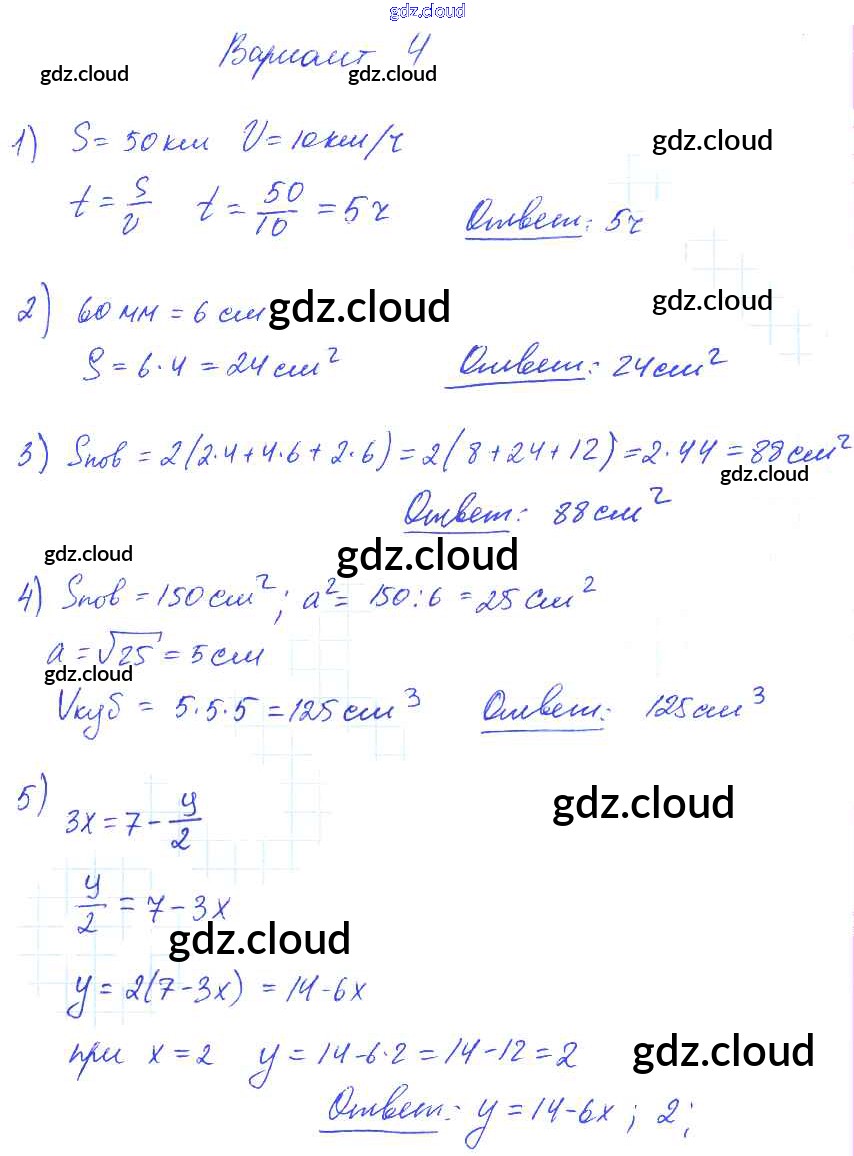 gdz.cloud
Вариант 4
gdz.cloud gdz.cloud
1) S = 50 км V = 10 км/ч
gdz.cloud
t = S/v t = 50/10 = 5 ч Ответ: 5ч
2) 60 мм = 6 см
gdz.cloud gdz.cloud
S = 6·4 = 24 см² Ответ: 24 см²
3) Sпов = 2(2·4+4·6+2·6) = 2(8+24+12) = 2·44 = 88 см²
gdz.cloud
Ответ: 88 см²
gdz.cloud gdz.cloud
4) Sпов = 150 см²; a² = 150:6 = 25 см²
a = √25 = 5 см
gdz.cloud
Vкуб = 5·5·5 = 125 см³ Ответ: 125 см³
5) 3x = 7 - y/2
gdz.cloud
y/2 = 7 - 3x
gdz.cloud
y = 2(7-3x) = 14-6x
при x = 2 y = 14-6·2 = 14-12 = 2
gdz.cloud
Ответ: y = 14-6x; 2;